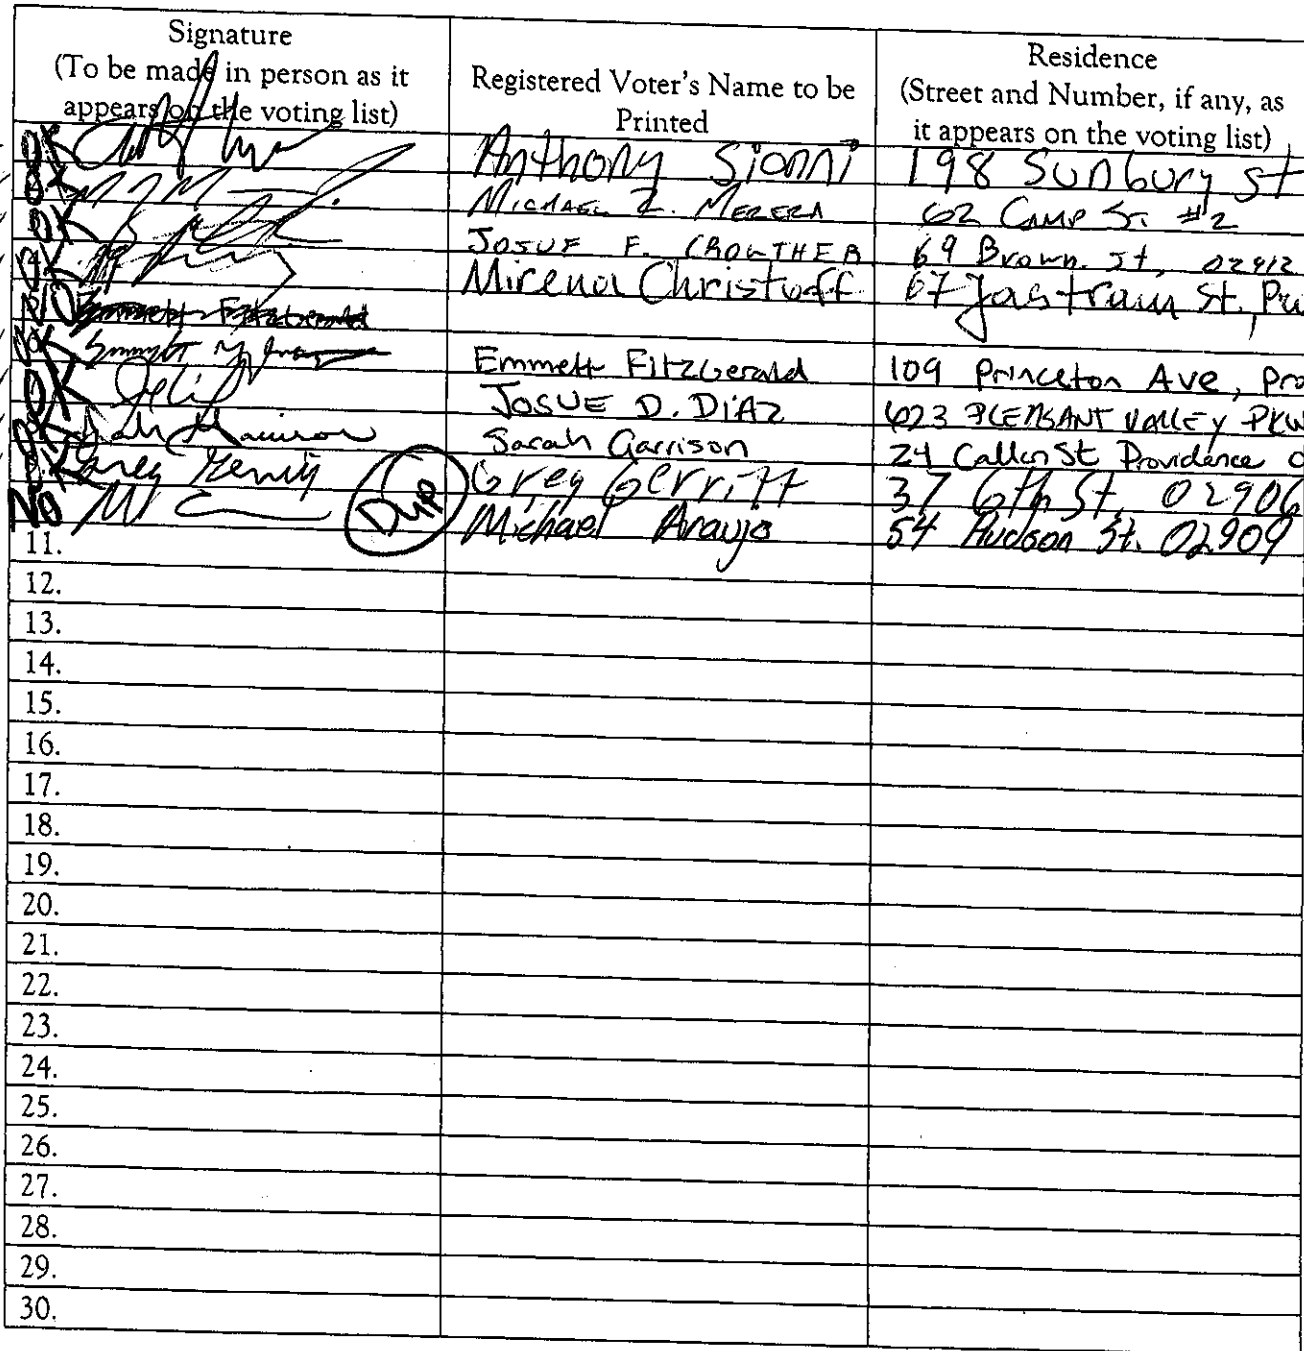 Signature
(To be made in person as it
appears on the voting list)
Registered Voter's Name to be
Printed
Residence
(Street and Number, if any, as
it appears on the voting list)
OK Anthony Sionni 198 Sunbury St
OK MICHAEL Z. 62 CAMP ST. #2
OK JOSUE F. CROWTHER 69 Brown St, 02912
OK Mirena Christoff 67 Jastram St.
NO Emmett Fitzgerald
OK Emmett Fitzgerald 109 Princeton Ave, Pro
OK JOSUE D. DIAZ 623 PLEASANT VALLEY PKW
OK Sarah Garrison 24 Callen St Providence 0
OK Greg Gerritt Greg Gerritt 37 6th St. 02906
NO Dup Michael Araujo 54 Hudson St. 02909
11.
12.
13.
14.
15.
16.
17.
18.
19.
20.
21.
22.
23.
24.
25.
26.
27.
28.
29.
30.